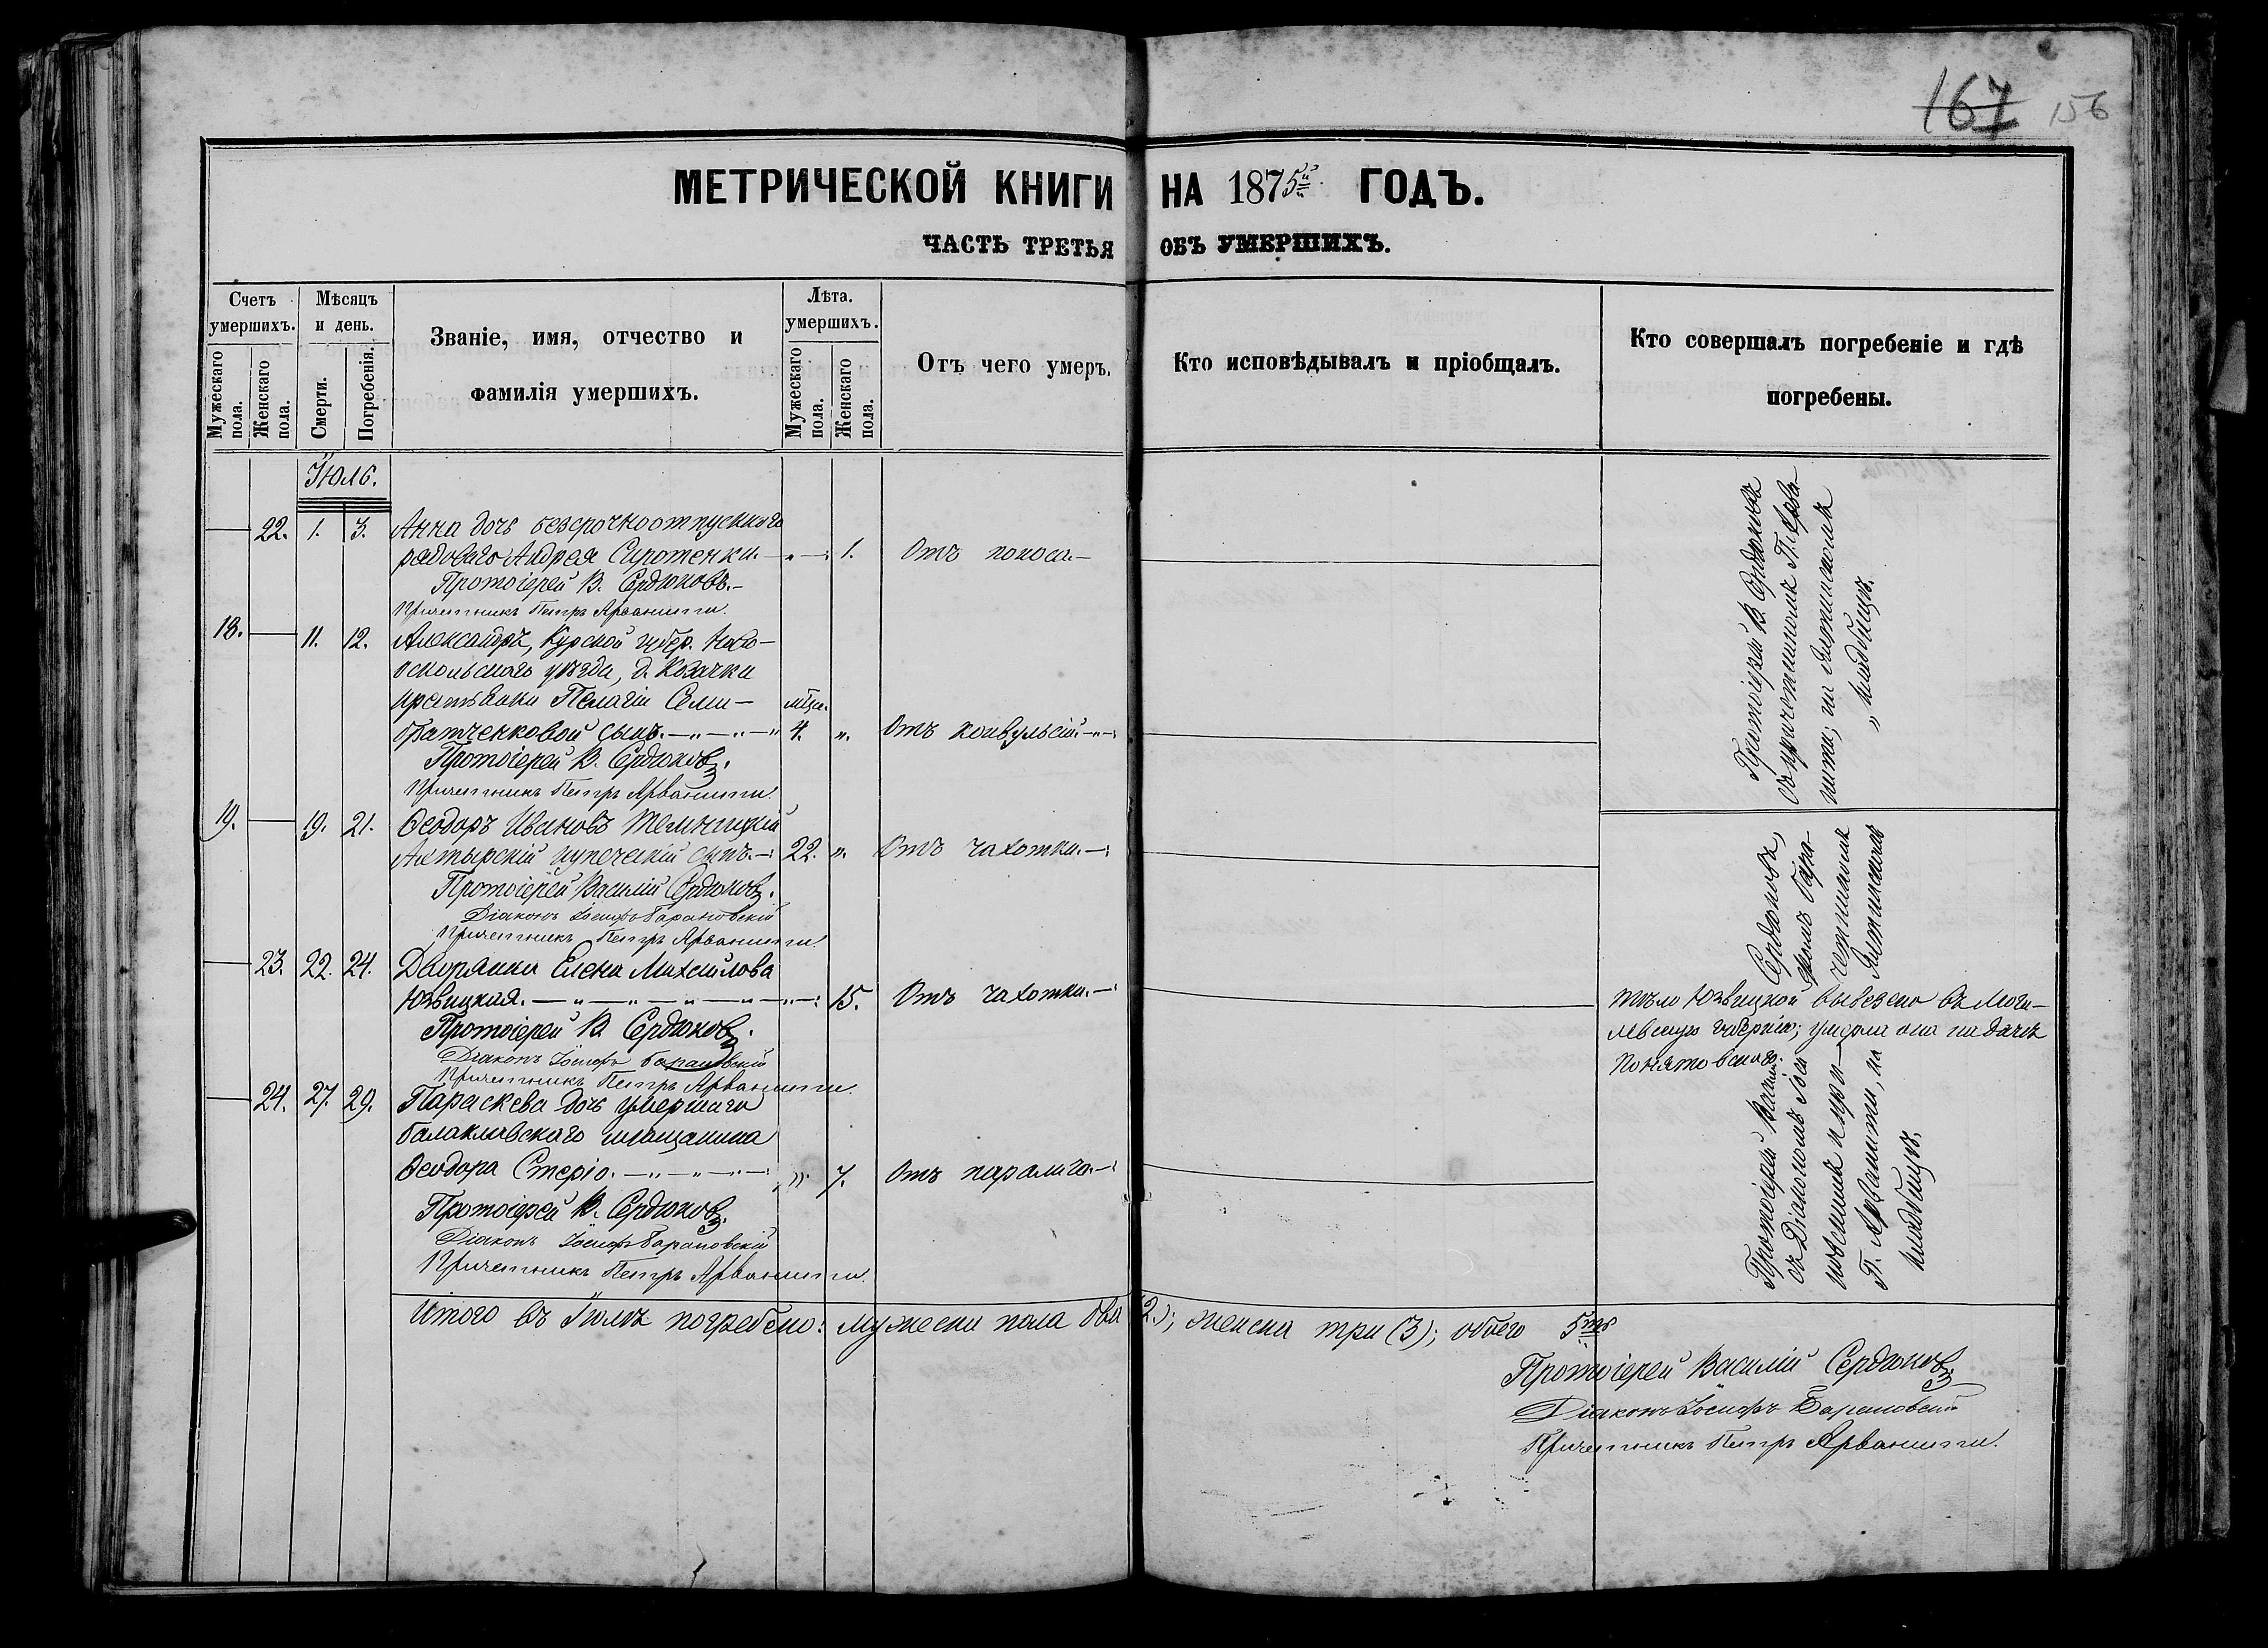 167 156
МЕТРИЧЕСКОЙ КНИГИ НА 1875й ГОДЪ.
ЧАСТЬ ТРЕТЬЯ ОБЪ УМЕРШИХЪ.
Счетъ умершихъ.
Мужескаго пола.
Женскаго пола.
Мѣсяцъ и день.
Смерти.
Погребенія.
Званіе, имя, отчество и
фамилія умершихъ.
Лѣта. умершихъ.
Мужескаго пола.
Женскаго пола.
Отъ чего умеръ.
Кто исповѣдывалъ и пріобщалъ.
Кто совершалъ погребеніе и гдѣ
погребены.
Іюль.
22. 1. 3. Анна дочь безсрочноотпускнаго
рядоваго Андрея Сиротенки. — „ — 1. Отъ поноса. —
Протоіерей В. Сердюковъ. —
Причетникъ Петръ Арванитти.
18. — 11. 12. Александръ, Курской губер. Ново-
оскольскаго уѣзда, д. Козачки
крестьянки Пелагіи Семи- мѣся.
братченковой сынъ. — „ — „ — „ 4. „. Отъ конвульсій. — „ —
Протоіерей В. Сердюковъ.
Причетникъ Петръ Арванитти.
Протоіерей В. Сердюковъ
съ причетникомъ П. Арва-
нитти, на
кладбищѣ.
19. — 19. 21. Ѳеодоръ Ивановъ
Ахтырскій купеческій сынъ. — 22. „. Отъ чахотки. —
Протоіерей Василій Сердюковъ.
Діаконъ Іосифъ Барановскій
Причетникъ Петръ Арванитти.
— 23. 22. 24. Дворянка Елена Михайлова
Юзвицкая. — „ — „ — „ — „ — „ — 15. Отъ чахотки. —
Протоіерей В. Сердюковъ.
Діаконъ Іосифъ Барановскій
Причетникъ Петръ Арванитти.
тѣло Юзвицкой вывезено въ Моги-
левскую губернію; умерла она на дачѣ
Понятовскаго.
— 24. 27. 29. Параскева дочь умершаго
балаклавскаго мѣщанина
Ѳеодора Стеріо. — „ — „ — „ — „ 7. Отъ паралича. —
Протоіерей В. Сердюковъ.
Діаконъ Іосифъ Барановскій
Причетникъ Петръ Арванитти.
Протоіерей Василій Сердюковъ,
съ Діакономъ Іосифомъ Бара-
новскимъ и причетникомъ
П. Арванитти, на
кладбищѣ.
Итого въ Іюлѣ погребено: мужеска пола два (2); женска три (3); обоего 5ть
Протоіерей Василій Сердюковъ
Діаконъ Іосифъ Барановскій
Причетникъ Петръ Арванитти.